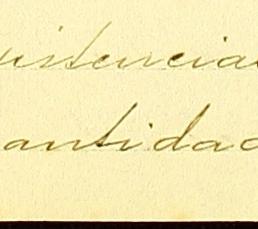 istencia
antidad